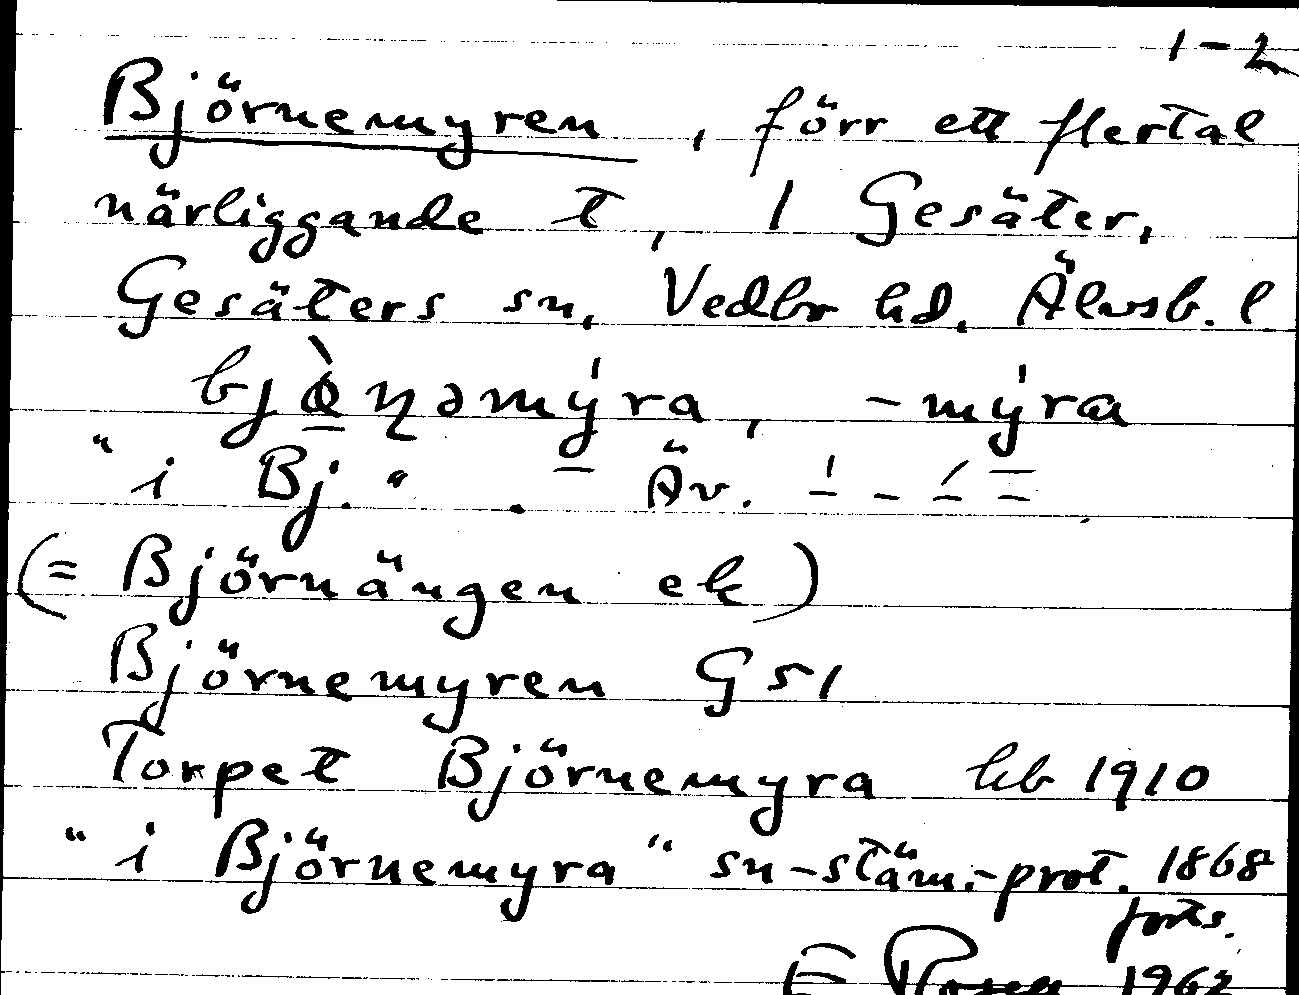 1-2
Björnemyren, förr ett flertal
närliggande t, 1 Gesäter,
Gesäters sn, Vedbo hd, Älvsb. l
bjø̀ɳəmýra, -mýra
"i Bj.". Äv.
(= Björnängen ek)
Björnemyren G51
Torpet Björnemyra hb 1910
"i Björnemyra" sn-stäm.-prot. 1868
forts.
E 1962